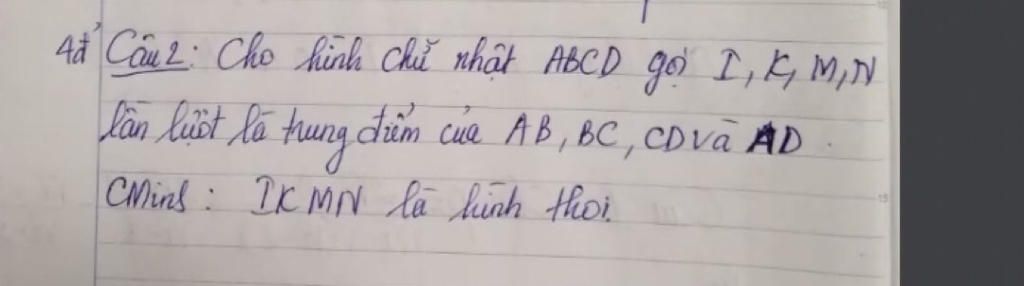 4đ Câu 2: Cho hình chữ nhật ABCD gọi I, K, M, N
lần lượt là trung điểm của AB, BC, CD và AD.
CMinh: IKMN là hình thoi.